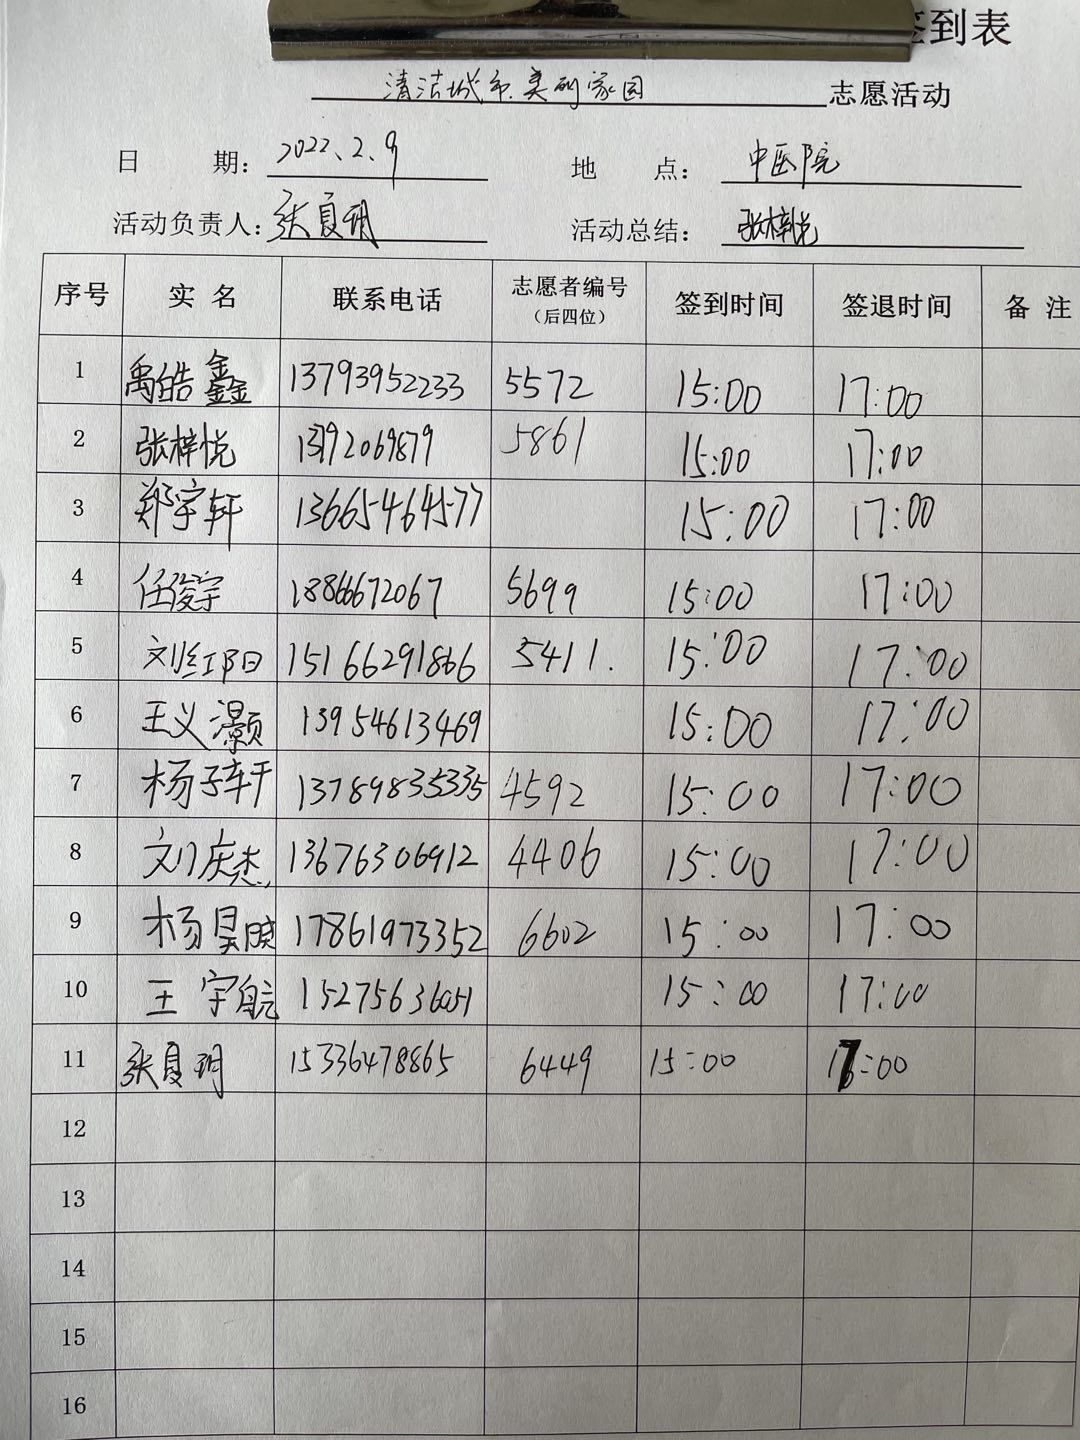 签到表
清洁城市.美丽家园 志愿活动
日 期: 2022.2.9 地 点: 中医院
活动负责人: 张夏玥 活动总结: 张梓悦
序号 实 名 联系电话 志愿者编号（后四位） 签到时间 签退时间 备 注
1 禹皓鑫 13793952233 5572 15:00 17:00
2 张梓悦 5861 15:00 17:00
3 郑宇轩 13665464577 15:00 17:00
4 任俊宇 5699 15:00 17:00
5 刘红阳 15166291866 5411. 15:00 17:00
6 王义灏 13954613469 15:00 17:00
7 杨子轩 13789835335 4592 15:00 17:00
8 刘庆杰 13676306912 4406 15:00 17:00
9 杨昊晓 17861973352 6602 15:00 17:00
10 王宇航 15275636051 15:00 17:00
11 张夏玥 15336478865 6449 15:00 17:00
12
13
14
15
16